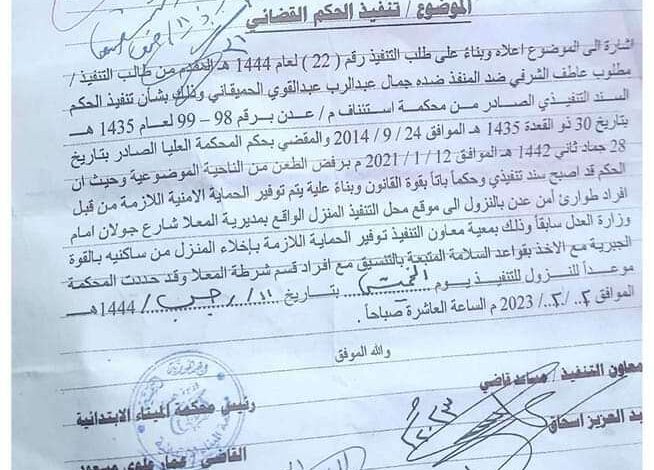 الموضوع / تنفيذ الحكم القضائي
اشارة الى الموضوع اعلاه وبناءً على طلب التنفيذ رقم ( 22 ) لعام 1444 هـ المقدم من طالب التنفيذ /
مطلوب عاطف الشرفي ضد المنفذ ضده جمال عبدالرب عبدالقوي الحميقاني وذلك بشأن تنفيذ الحكم
السند التنفيذي الصادر من محكمة استئناف م / عدن برقم 98 – 99 لعام 1435 هـ
بتاريخ 30 ذو القعدة 1435 هـ الموافق 24 / 9 / 2014 والمقضي بحكم المحكمة العليا الصادر بتاريخ
28 جماد ثاني 1442 هـ الموافق 12 / 1 / 2021 م برفض الطعن من الناحية الموضوعية وحيث ان
الحكم قد اصبح سند تنفيذي وحكماً باتاً بقوة القانون وبناءً علية يتم توفير الحماية الامنية اللازمة من قبل
افراد طوارئ أمن عدن بالنزول الى موقع محل التنفيذ المنزل الواقع بمديرية المعلا شارع جولان امام
وزارة العدل سابقاً وذلك بمعية معاون التنفيذ توفير الحماية اللازمة بإخلاء المنزل من ساكنيه بالقوة
الجبرية مع الاخذ بقواعد السلامة المتبعة بالتنسيق مع افراد قسم شرطة المعلا وقد حددت المحكمة
موعداً للنزول للتنفيذ يوم بتاريخ 11 / رجب / 1444 هـ
الموافق 2 / 2 / 2023 م الساعة العاشرة صباحاً.
والله الموفق
معاون التنفيذ / مساعد قاضي
رئيس محكمة الميناء الابتدائية
بد العزيز اسحاق
القاضي